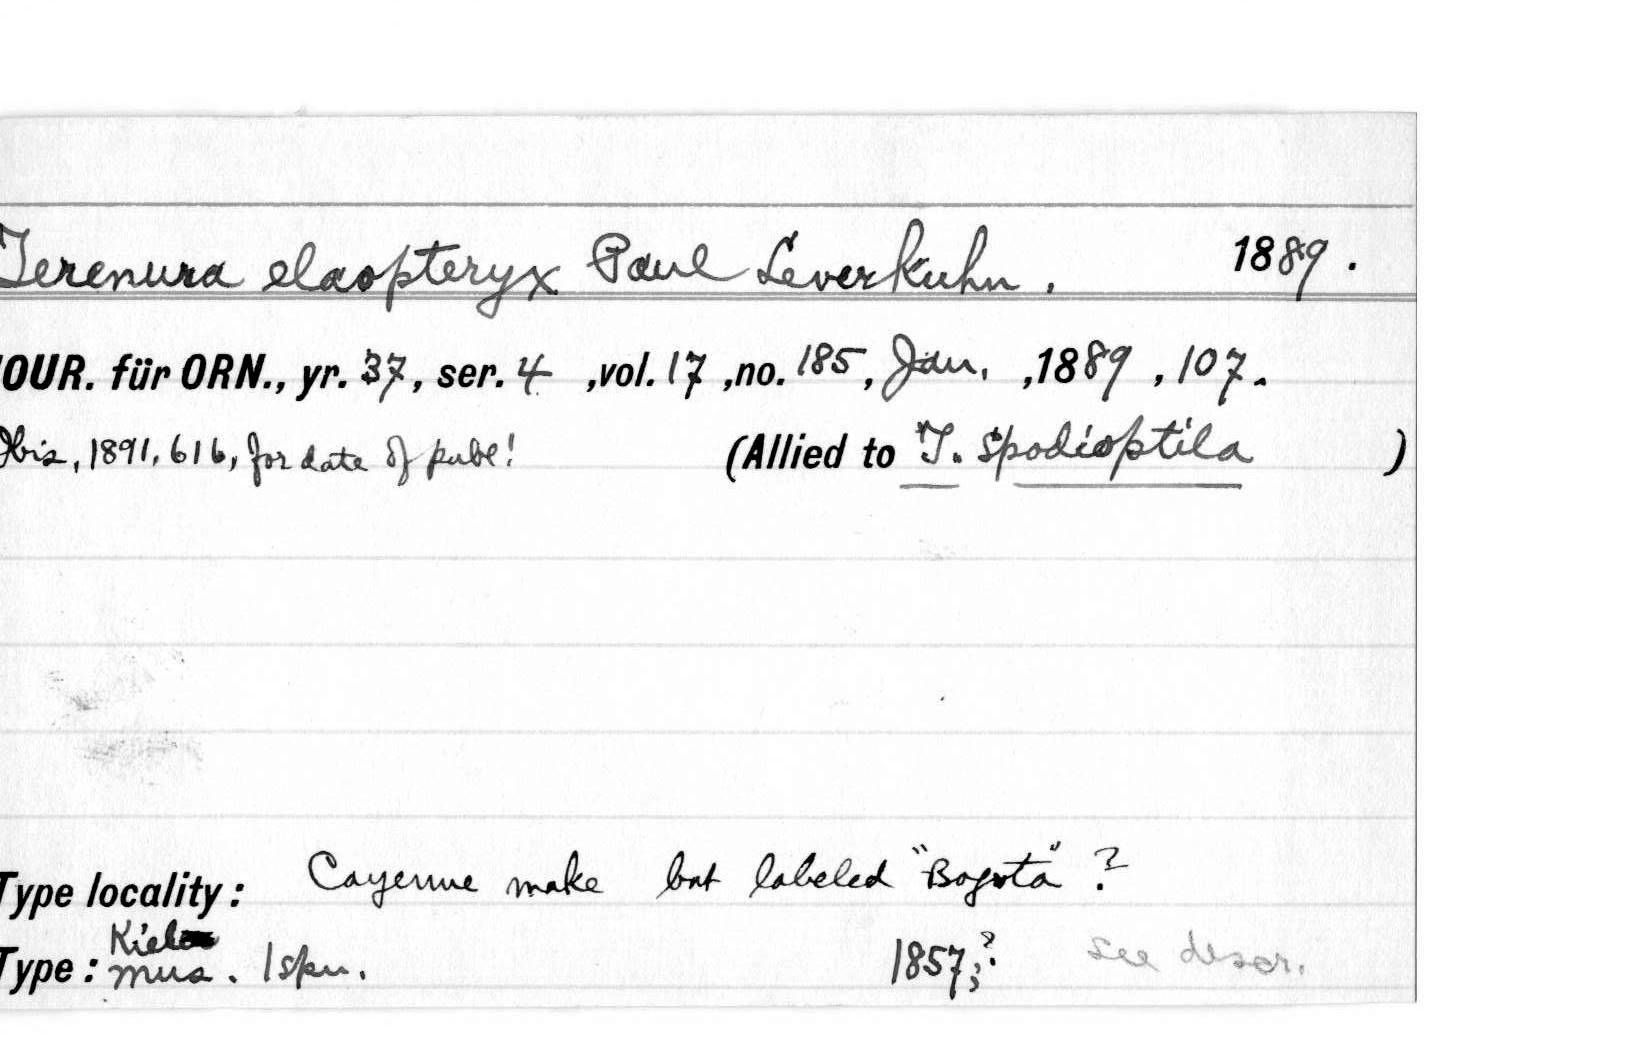 Terenura elaopteryx Paul Leverkuhn. 1889.
JOUR. für ORN., yr. 37, ser. 4 ,vol. 17 ,no. 185, Jan. ,1889 , 107.
Ibis, 1891, 616, for date of publ! (Allied to T. spodioptila )
Type locality: Cayenne make but labeled "Bogota" ?
Kiel
Type: mus. 1 spn. 1857;? see descr.